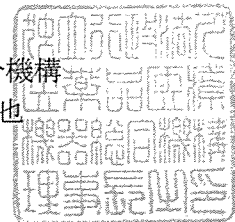 機構
也
独立行政法人
医薬品医療
機器総合機構
理事長之印